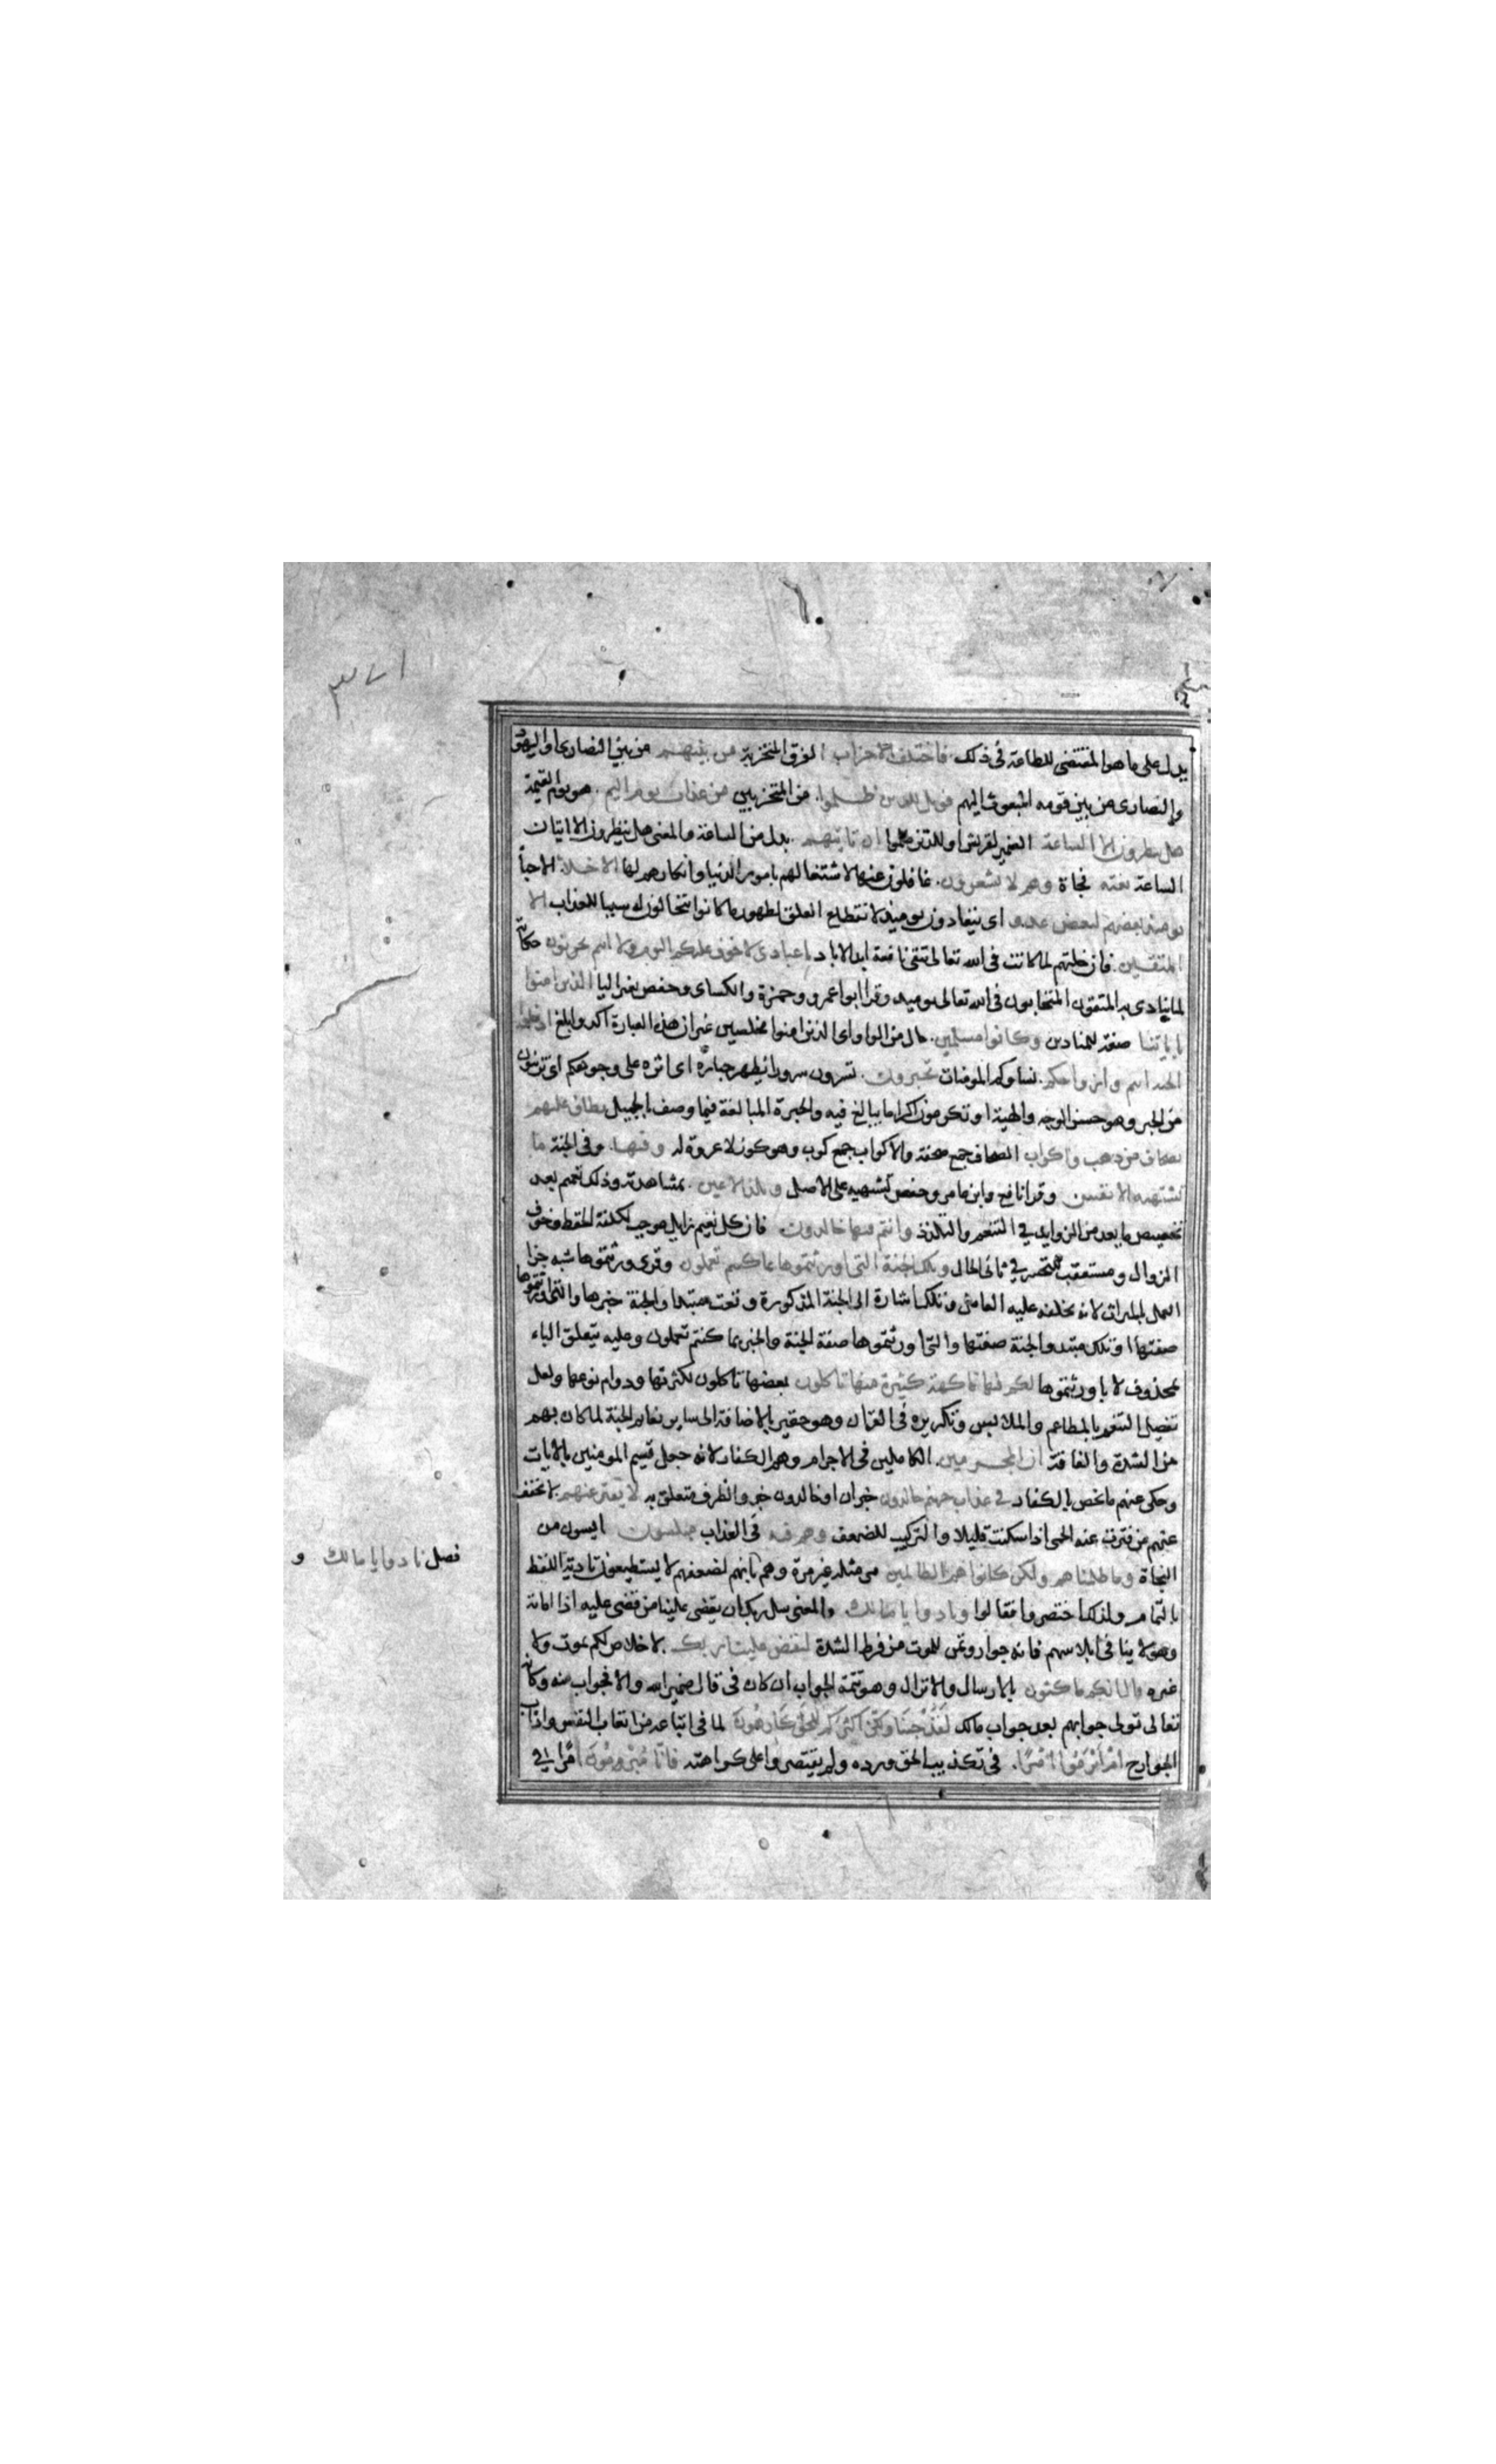 يدل على ما هو المقتضى للطاعة فى ذلك فاختلف الاحزاب الفرق المتحزبة من بينهم من بين النصارى او اليهود
والنصارى من بين قومه المبعوث اليهم فويل للذين ظلموا من المتحزبين من عذاب يوم اليم هو يوم القيمة
هل ينظرون الا الساعة الضمير لقريش او للذين ظلموا ان تاتيهم بدل من الساعة والمعنى هل ينظرون الا اتيان
الساعة بغتة فجاة وهم لا يشعرون غافلون عنها لاشتغالهم بامور الدنيا وانكارهم لها الاخلاء الاحباء
يومئذ بعضهم لبعض عدو اى يتعادون يومئذ لانقطاع العلق لظهور ما كانوا يتخالون له سببا للعذاب الا
المتقين فان خلتهم لما كانت فى الله تعالى تبقى نافعة ابد الاباد يا عبادى لا خوف عليكم اليوم ولا انتم تحزنون حكاية
لما ينادى به المتقون المتحابون فى الله تعالى يوميذ وقرا ابو عمرو وحمزة والكساى وحفص بغير اليا الذين امنوا
باياتنا صفة للمنادين وكانوا مسلمين حال من الواو اى الذين امنوا مخلصين غير ان هذه العبارة اكد وابلغ ادخلوا
الجنة انتم وازواجكم نساوكم المومنات تحبرون تسرون سرورا يظهر حباره اى اثره على وجوهكم او تزينون
من الحبر وهو حسن الوجه والهيئة او تكرمون اكراما يبالغ فيه والحبرة المبالغة فيما وصف بالجميل يطاف عليهم
بصحاف من ذهب واكواب الصحاف جمع صحفة والاكواب جمع كوب وهو كوز لا عروة له وفيها وفى الجنة ما
تشتهيه الانفس وقرا نافع وابن عامر وحفص تشتهيه على الاصل وتلذ الاعين بمشاهدته وذلك تعميم بعد
تخصيص ما يعد من الزوايد فى التنعم والتلذذ وانتم فيها خالدون فان كل نعيم زايل موجب لكلفة الحفظ وخوف
الزوال ومستعقب للتحسر فى ثانى الحال وتلك الجنة التى اورثتموها بما كنتم تعملون وقرى ورثتموها شبه جزا
العمل بالميراث لانه يخلفه عليه العامل وتلك اشارة الى الجنة المذكورة وقعت مبتدا والجنة خبرها والتى اورثتموها
صفتها او تلك مبتدا والجنة صفتها والتى اورثتموها صفة الجنة والخبر بما كنتم تعملون وعليه يتعلق الباء
بمحذوف لا باورثتموها لكم فيها فاكهة كثيرة منها تاكلون بعضها تاكلون لكثرتها ودوام نوعها ولعل
تفصيل التنعم بالمطاعم والملابس وتكريره فى القران وهو حقير بالاضافة الى ساير نعايم الجنة لما كان بهم
من الشدة والفاقة ان المجرمين الكاملين فى الاجرام وهم الكفار لانه جعل قسيم المومنين بالايات
وحكى عنهم ما يخص بالكفار فى عذاب جهنم خالدون خبر ان او خالدون خبر والظرف متعلق به لا يفتر عنهم لا يخفف
عنهم من فترت عنه الحمى اذا سكنت قليلا والتركيب للضعف وهم فيه فى العذاب مبلسون ايسون من
النجاة وما ظلمناهم ولكن كانوا هم الظالمين مر مثله غير مرة وهم فانهم لضعفهم لا يستطيعون تادية اللفظ
بالتمام ولذلك اختصروا فقالوا ونادوا يا مالك والمعنى سل ربك ان يقضى علينا من قضى عليه اذا اماته
وهو لا ينافى ابلاسهم فانه جوار وتمن للموت من فرط الشدة ليقض علينا ربك لا خلاص لكم بموت ولا
غيره قال انكم ماكثون بالارسال والانزال وهو تتمة الجواب ان كان فى قال ضمير الله والا فجواب منه وكانه
تعالى تولى جوابهم بعد جواب مالك لَقَدْ جِئْنَا وَلَكِنَّ اَكْثَرَكُمْ لِلْحَقِّ كَارِهُونَ لما فى اتباعه من اتعاب النفس واذاب
الجوارح اَمْ اَبْرَمُوا اَمْرًا فى تكذيب الحق ورده ولم يقتصروا على كراهته فَاِنَّا مُبْرِمُونَ امرا فى
فصل نادوا يا مالك و
٣٧١